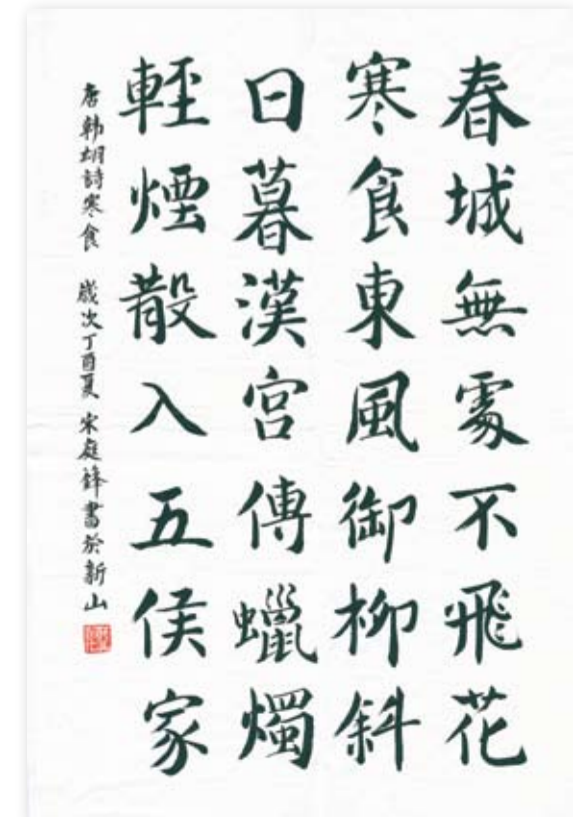 春城無處不飛花
寒食東風御柳斜
日暮漢宮傳蠟燭
輕煙散入五侯家
唐韓翃詩寒食 歲次丁酉夏 宋庭鋒書於新山